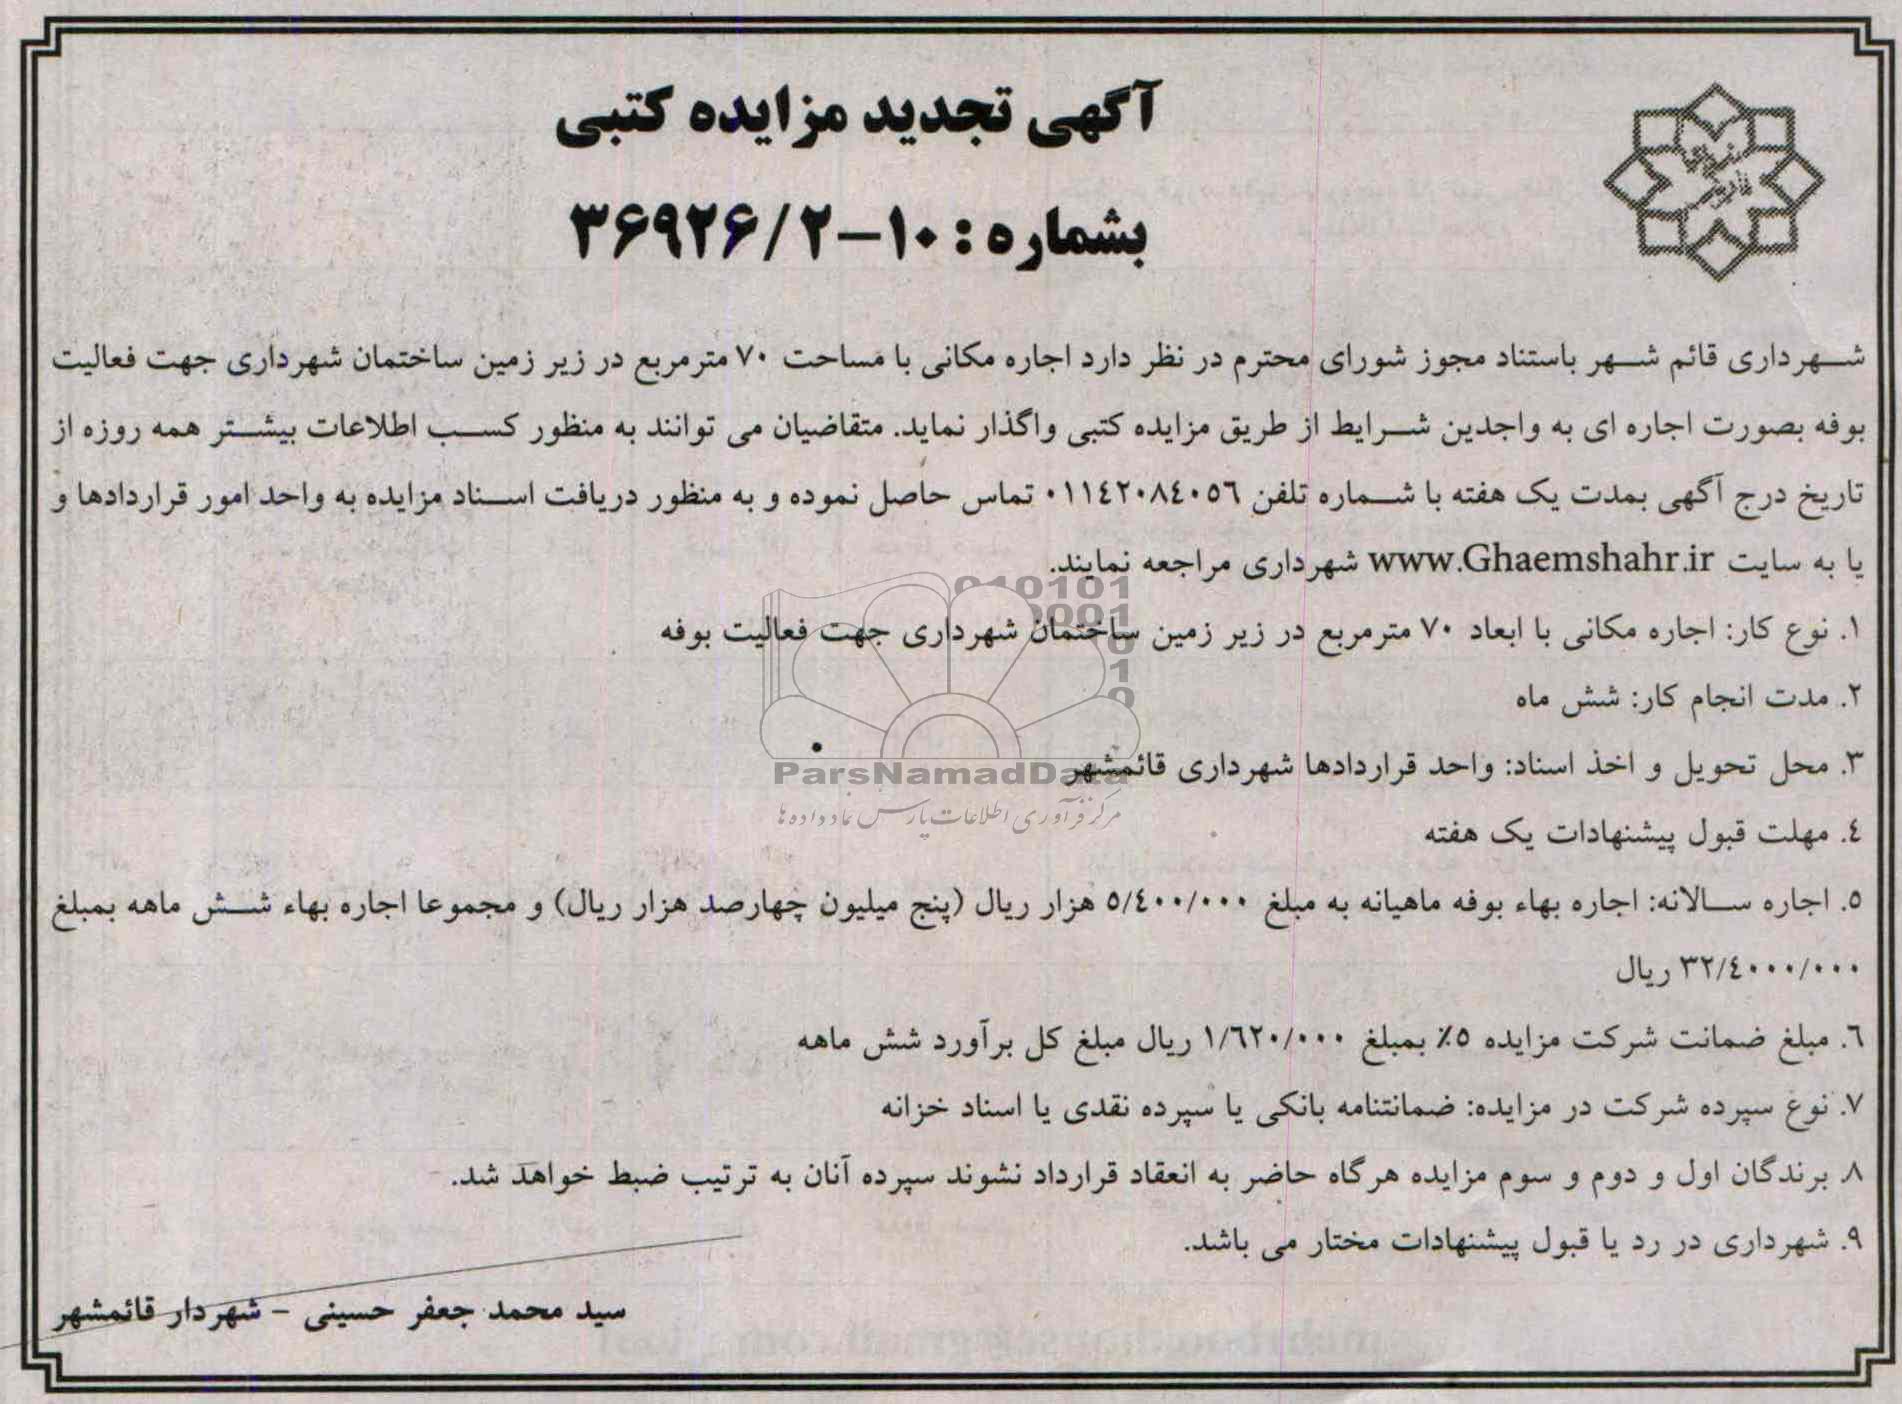 آگهی تجدید مزایده کتبی
بشماره: ۱۰-۳۶۹۲۶/۲
شهرداری قائم شهر باستناد مجوز شورای محترم در نظر دارد اجاره مکانی با مساحت ۷۰ مترمربع در زیر زمین ساختمان شهرداری جهت فعالیت
بوفه بصورت اجاره ای به واجدین شرایط از طریق مزایده کتبی واگذار نماید. متقاضیان می توانند به منظور کسب اطلاعات بیشتر همه روزه از
تاریخ درج آگهی بمدت یک هفته با شماره تلفن ۰۱۱٤۲۰۸٤۰۵٦ تماس حاصل نموده و به منظور دریافت اسناد مزایده به واحد امور قراردادها و
یا به سایت www.Ghaemshahr.ir شهرداری مراجعه نمایند.
۱. نوع کار: اجاره مکانی با ابعاد ۷۰ مترمربع در زیر زمین ساختمان شهرداری جهت فعالیت بوفه
۲. مدت انجام کار: شش ماه
۳. محل تحویل و اخذ اسناد: واحد قراردادها شهرداری قائمشهر
ParsNamadData
مرکز فرآوری اطلاعات پارس نماد داده ها
٤. مهلت قبول پیشنهادات یک هفته
۵. اجاره سالانه: اجاره بهاء بوفه ماهیانه به مبلغ ۵/٤۰۰/۰۰۰ هزار ریال (پنج میلیون چهارصد هزار ریال) و مجموعا اجاره بهاء شش ماهه بمبلغ
۳۲/٤۰۰۰/۰۰۰ ریال
٦. مبلغ ضمانت شرکت مزایده ۵٪ بمبلغ ۱/٦۲۰/۰۰۰ ریال مبلغ کل برآورد شش ماهه
۷. نوع سپرده شرکت در مزایده: ضمانتنامه بانکی یا سپرده نقدی یا اسناد خزانه
۸. برندگان اول و دوم و سوم مزایده هرگاه حاضر به انعقاد قرارداد نشوند سپرده آنان به ترتیب ضبط خواهد شد.
۹. شهرداری در رد یا قبول پیشنهادات مختار می باشد.
سید محمد جعفر حسینی - شهردار قائمشهر